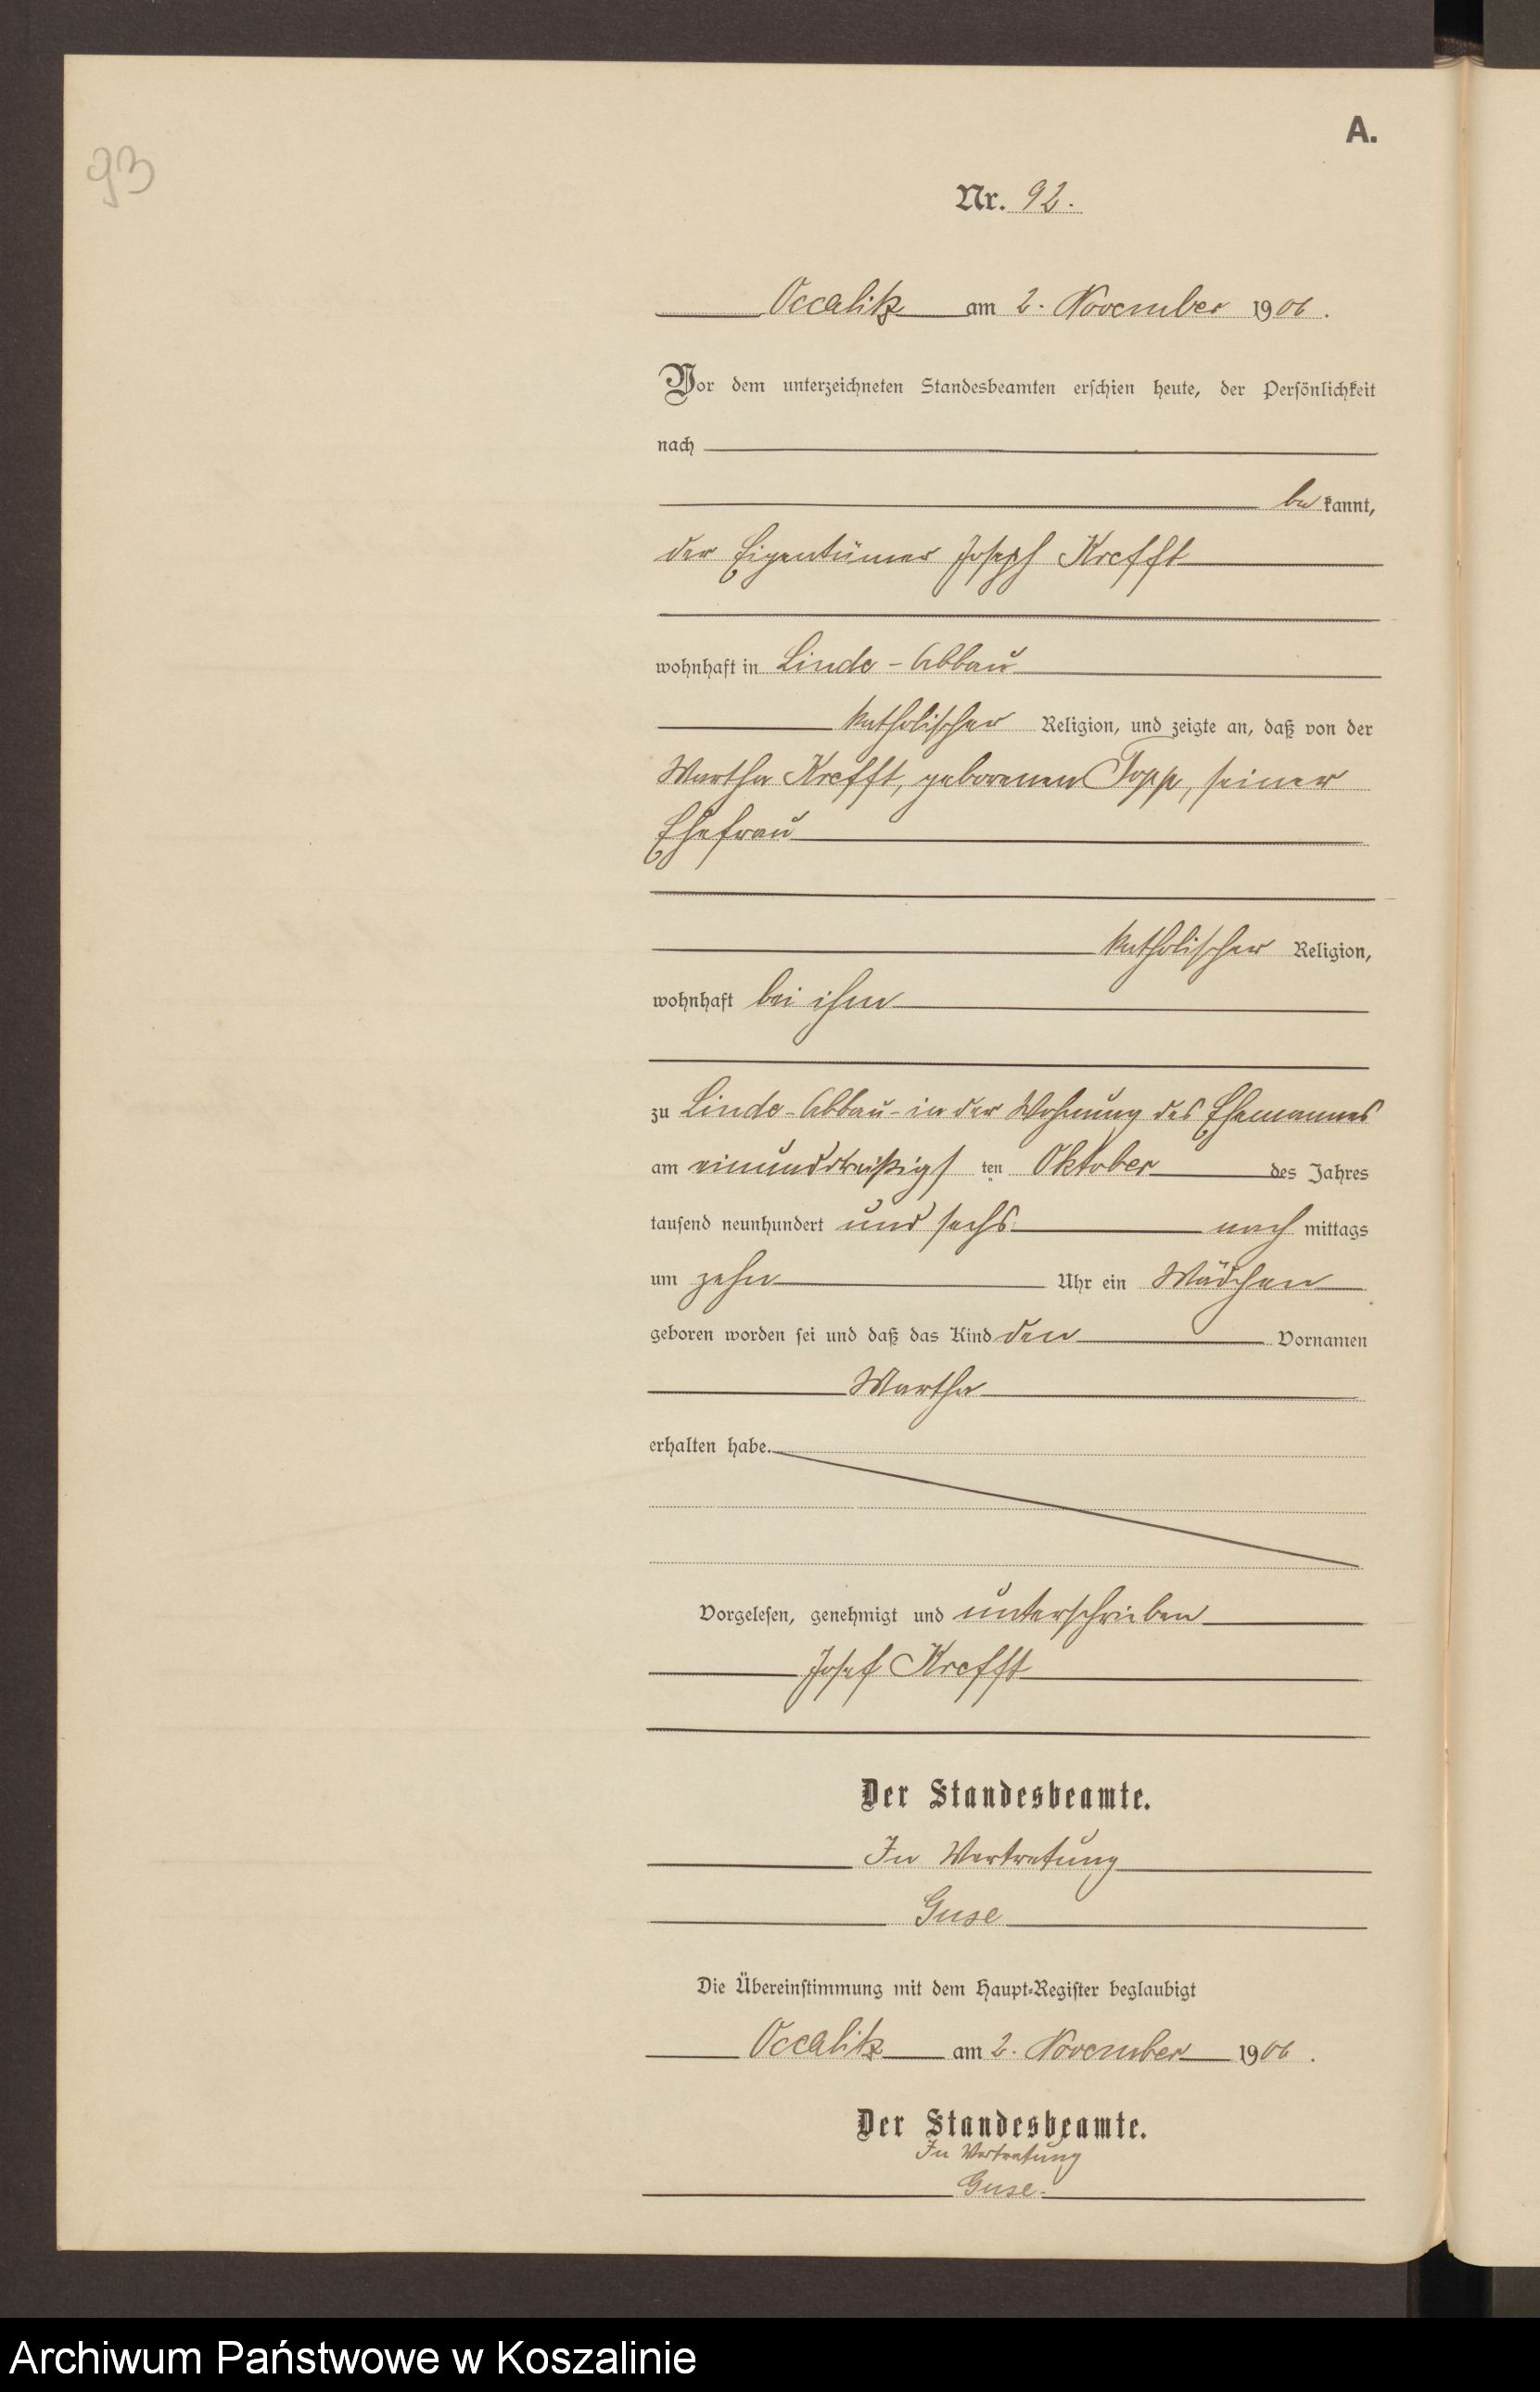 93
A.
Nr. 92.
Occalitz am 2. November 1906.
Vor dem unterzeichneten Standesbeamten erschien heute, der Persönlichkeit
nach
bekannt,
der Eigentümer Joseph Krefft
wohnhaft in Linde-Abbau
katholischer Religion, und zeigte an, daß von der
Martha Krefft, geborenen Topp, seiner
Ehefrau
katholischer Religion,
wohnhaft bei ihm
zu Linde-Abbau - in der Wohnung des Ehemannes
am einunddreißigsten Oktober des Jahres
tausend neunhundert und sechs nachmittags
um zehn Uhr ein Mädchen
geboren worden sei und daß das Kind den Vornamen
Martha
erhalten habe.
Vorgelesen, genehmigt und unterschrieben
Josef Krefft
Der Standesbeamte.
In Vertretung
Guse
Die Übereinstimmung mit dem Haupt-Register beglaubigt
Occalitz am 2. November 1906.
Der Standesbeamte.
In Vertretung
Guse.
Archiwum Państwowe w Koszalinie